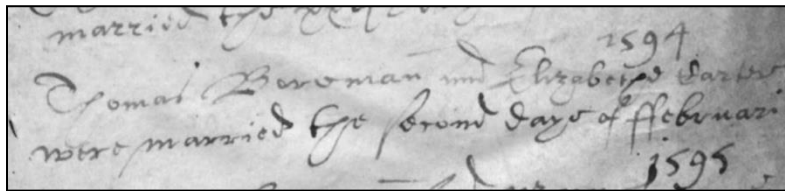 married the xxix
1594
Thomas Boreman and Elizabethe Carter
were married the second daye of ffebruari
1595